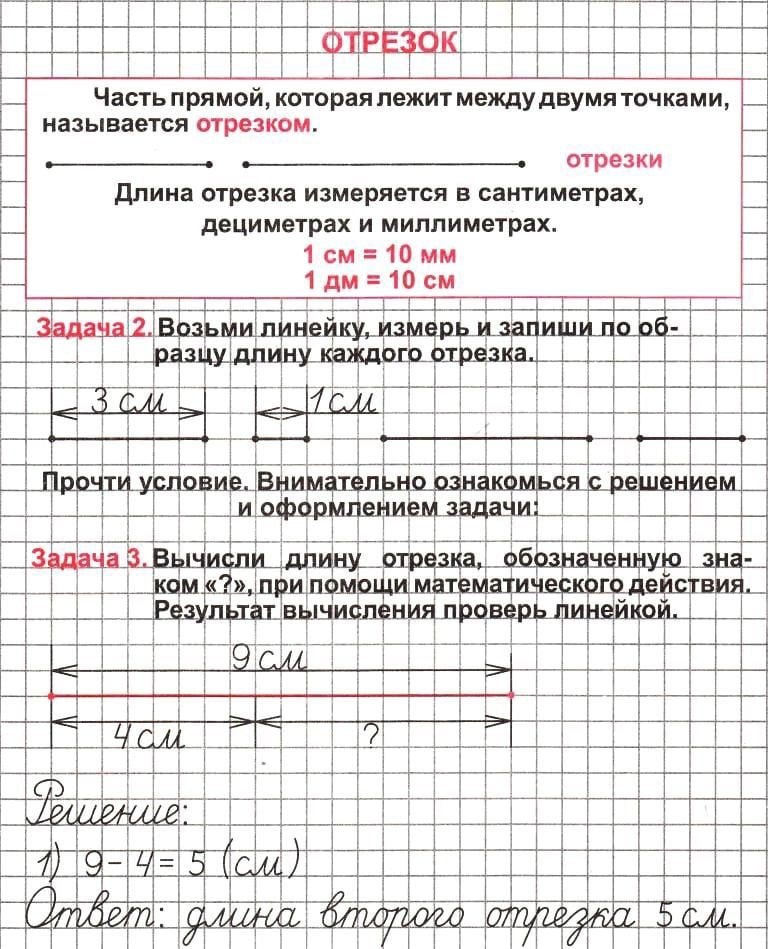 ОТРЕЗОК
Часть прямой, которая лежит между двумя точками,
называется отрезком.
отрезки
Длина отрезка измеряется в сантиметрах,
дециметрах и миллиметрах.
1 см = 10 мм
1 дм = 10 см
Задача 2. Возьми линейку, измерь и запиши по об-
разцу длину каждого отрезка.
3 см 1 см
Прочти условие. Внимательно ознакомься с решением
и оформлением задачи:
Задача 3. Вычисли длину отрезка, обозначенную зна-
ком «?», при помощи математического действия.
Результат вычисления проверь линейкой.
9 см
4 см ?
Решение:
1) 9 - 4 = 5 (см)
Ответ: длина второго отрезка 5 см.